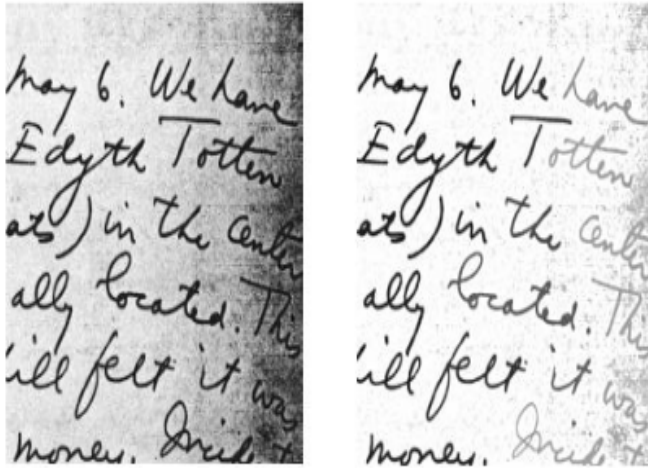 May 6. We have
Edyth Totten
ats) in the center
ally located. This
ill felt it was
money. Incident
May 6. We have
Edyth Totten
ats) in the center
ally located. This
ill felt it was
money.